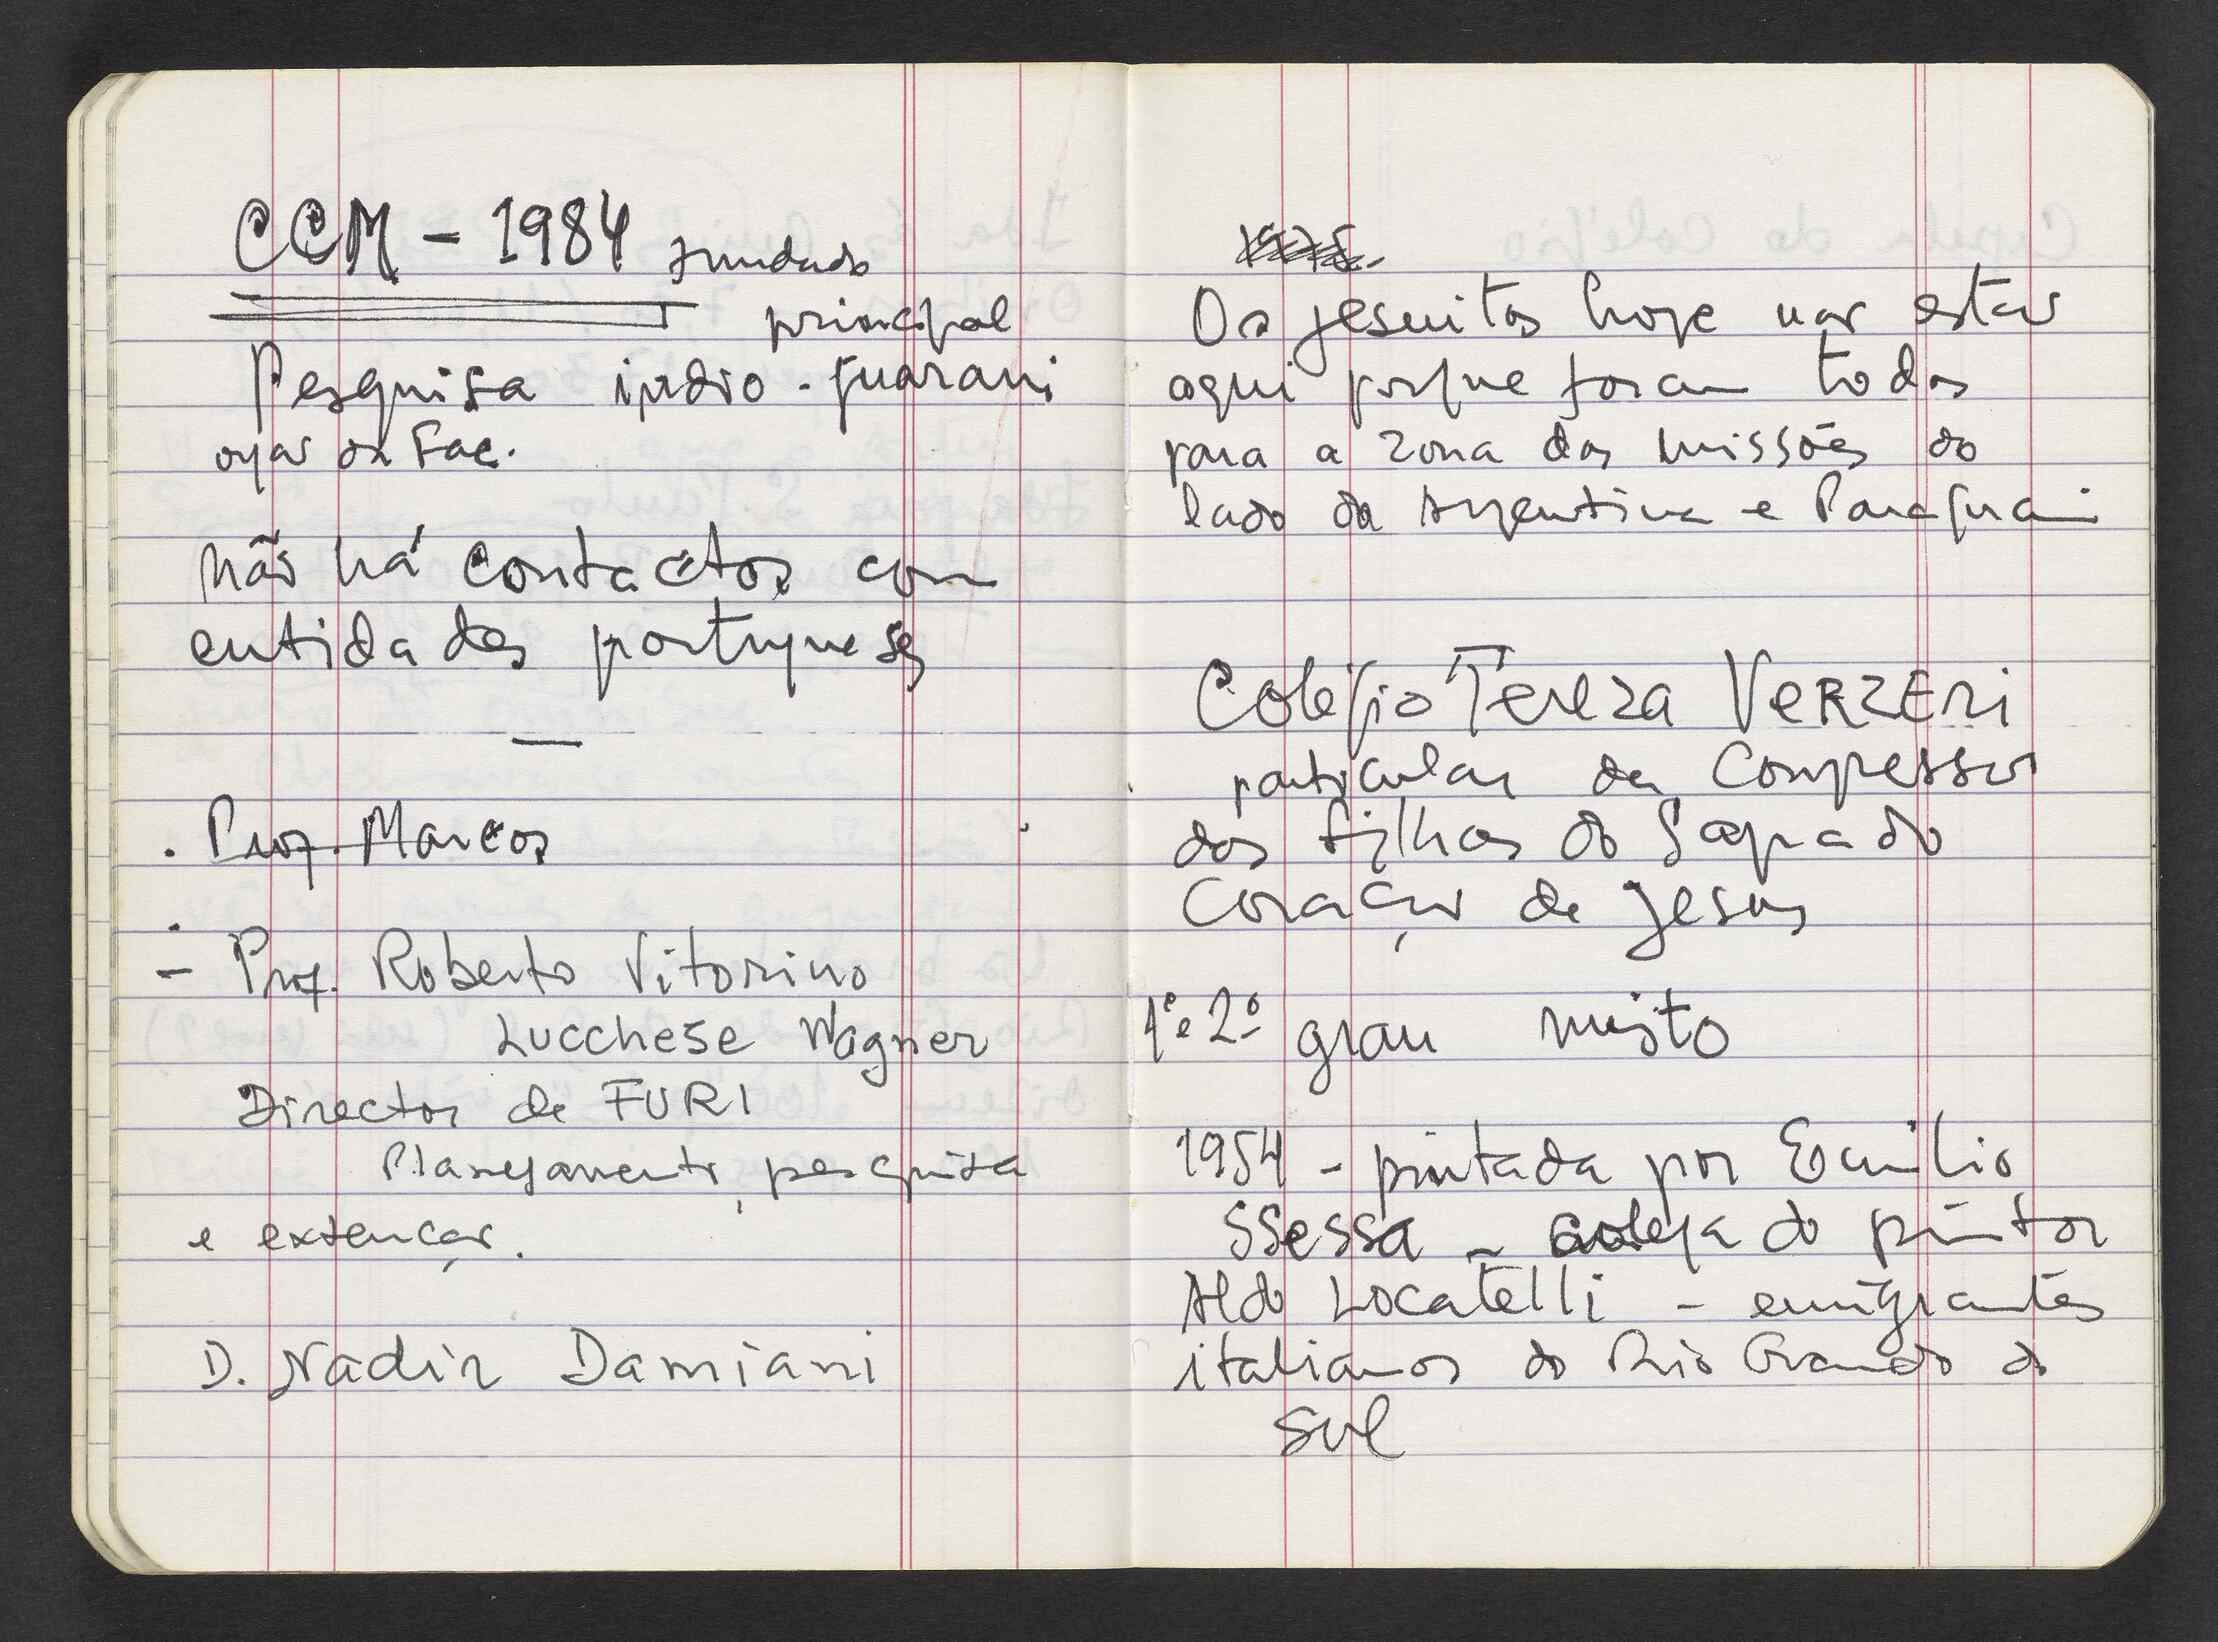 CCM - 1984 fundado
principal
Pesquisa indio-guarani
da Fac.
não há contactos com
entidades portugueses
—
. Prof. Marcos
- Prof. Roberto Vitorino
Lucchese Wagner
Director de FURI
Planejamento, pesquisa
e extenção.
D. Nadir Damiani
Os jesuitas hoje não estão
aqui porque foram todos
para a zona das missões do
lado da Argentina e Paraguai
Colégio Tereza VERZERI
particular da Congressão
das filhas do Sagrado
Coração de Jesus
1º e 2º grau misto
1954 - pintada por Emilio
Ssessa - colega do pintor
Aldo Locatelli - emigrantes
italianos do Rio Grando do
Sul